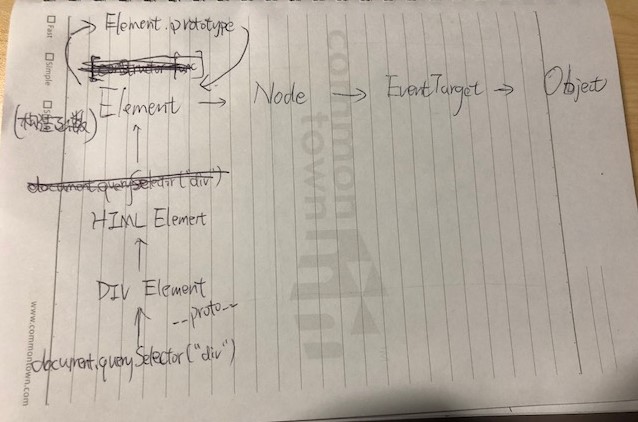 Element.prototype
Element → Node → EventTarget → Object
(构造函数)
document.querySelector("div")
HTML Element
DIV Element
--proto--
document.querySelector("div")
Fast
Simple
commontown
www.commontown.com